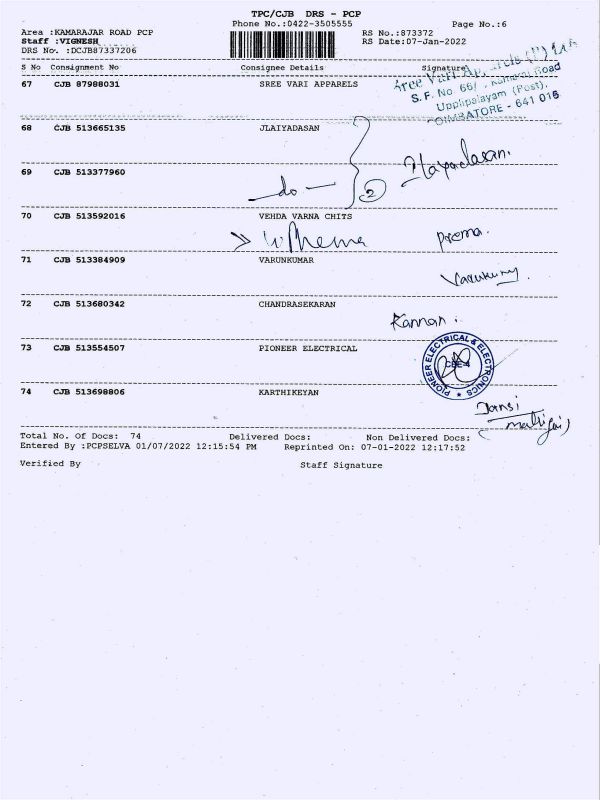 TPC/CJB DRS - PCP
Phone No.:0422-3505555 Page No.:6
Area :KAMARAJAR ROAD PCP RS No.:873372
Staff :VIGNESH RS Date:07-Jan-2022
DRS No. :DCJB87337206
S No Consignment No Consignee Details Signature
67 CJB 87988031 SREE VARI APPARELS
S.F. No 66/ Road
Upplipalayam (Post),
COIMBATORE - 641 015
68 CJB 513665135 JLAIYADASAN
69 CJB 513377960
do 2
70 CJB 513592016 VEHDA VARNA CHITS
Prema.
71 CJB 513384909 VARUNKUMAR
72 CJB 513680342 CHANDRASEKARAN
Kannan.
73 CJB 513554507 PIONEER ELECTRICAL
PIONEER ELECTRICAL & ELECTRONICS
CBE-4
74 CJB 513698806 KARTHIKEYAN
Jansi
Total No. Of Docs: 74 Delivered Docs: Non Delivered Docs:
Entered By :PCPSELVA 01/07/2022 12:15:54 PM Reprinted On: 07-01-2022 12:17:52
Verified By Staff Signature